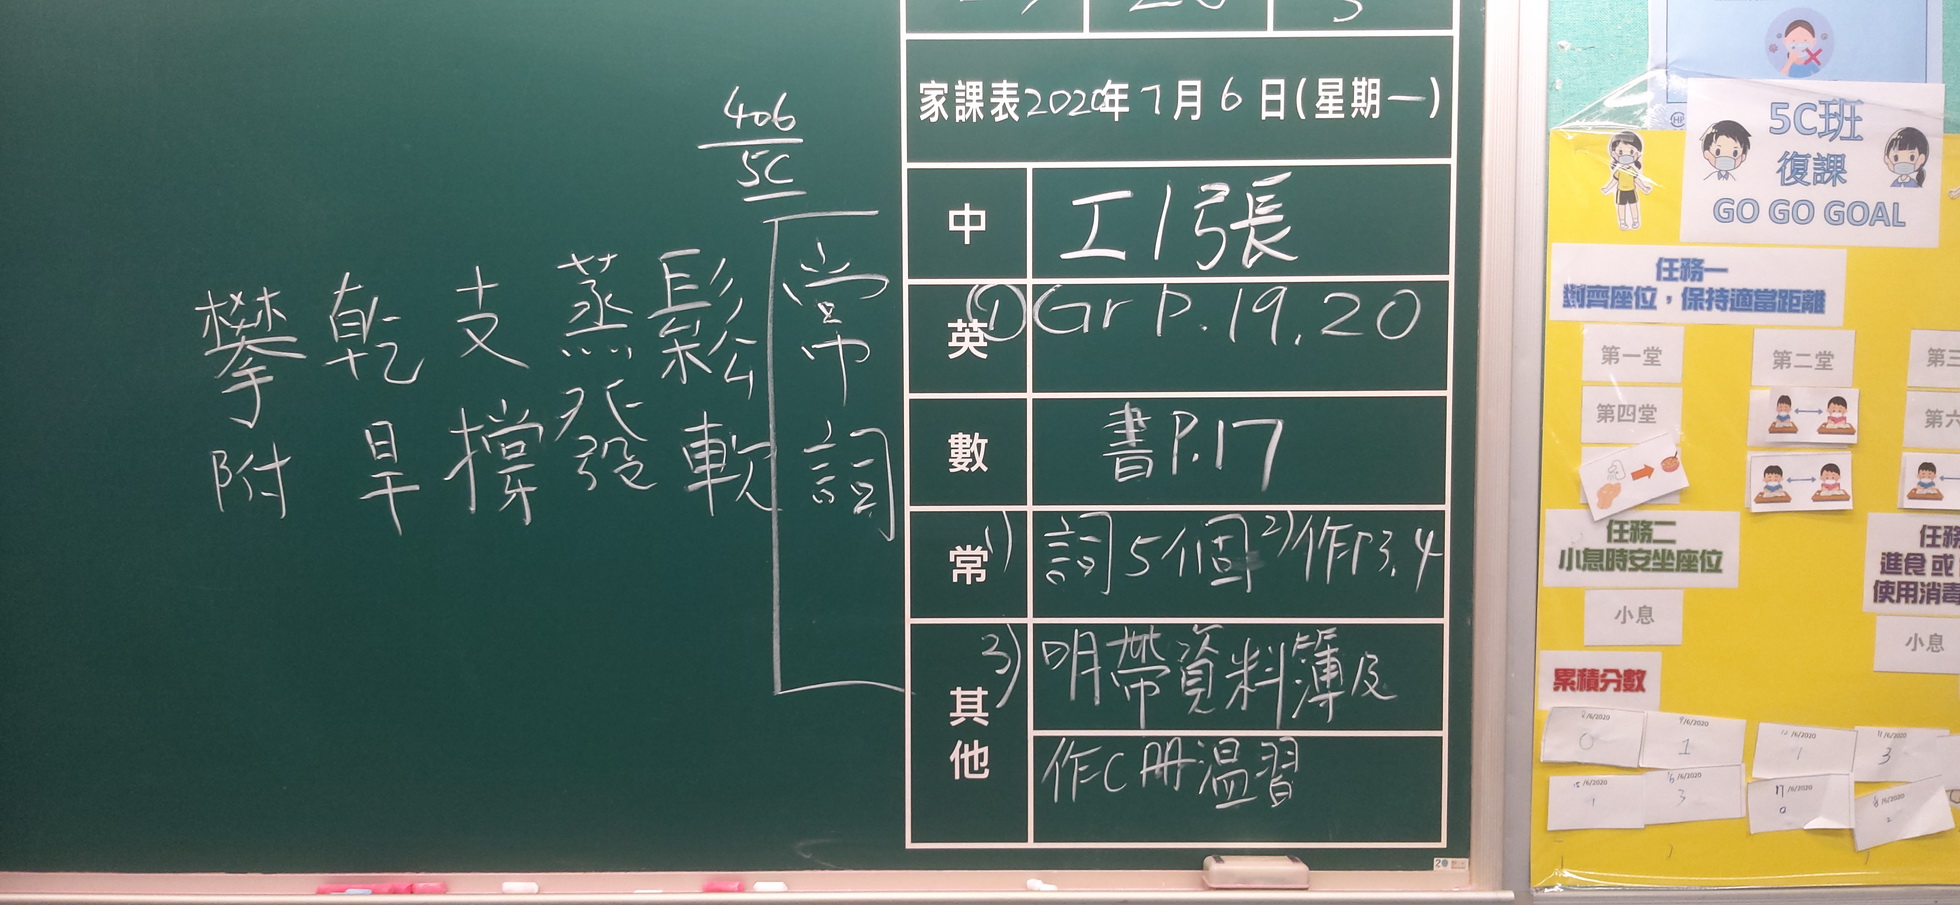 家課表2020年7月6日(星期一)
中 工1張
英 ①Gr P.19,20
數 書P.17
常 1)詞5個 2)作P3,4
其他 3)明帶資料簿及
作C冊溫習
406
5C
常詞
鬆軟
蒸發
支撐
乾旱
攀附
5C班
復課
GO GO GOAL
任務一
對齊座位，保持適當距離
第一堂
第二堂
第三
第四堂
第六
任務二
小息時安坐座位
任務
進食或
使用消毒
小息
小息
累積分數
2/6/2020
0
9/6/2020
1
/6/2020
1
11/6/2020
3
15/6/2020
1
/6/2020
3
17/6/2020
0
/6/2020
2